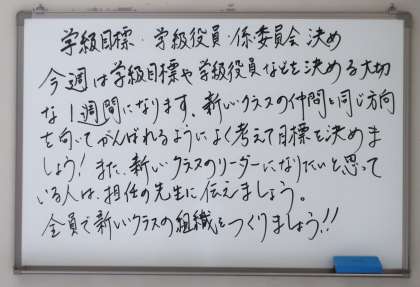 学級目標・学級役員・係委員会決め
今週は学級目標や学級役員などを決める大切
な1週間になります。新しいクラスの仲間と同じ方向
を向いてがんばれるようによく考えて目標を決めま
しょう！また、新しいクラスのリーダーになりたいと思って
いる人は、担任の先生に伝えましょう。
全員で新しいクラスの組織をつくりましょう!!